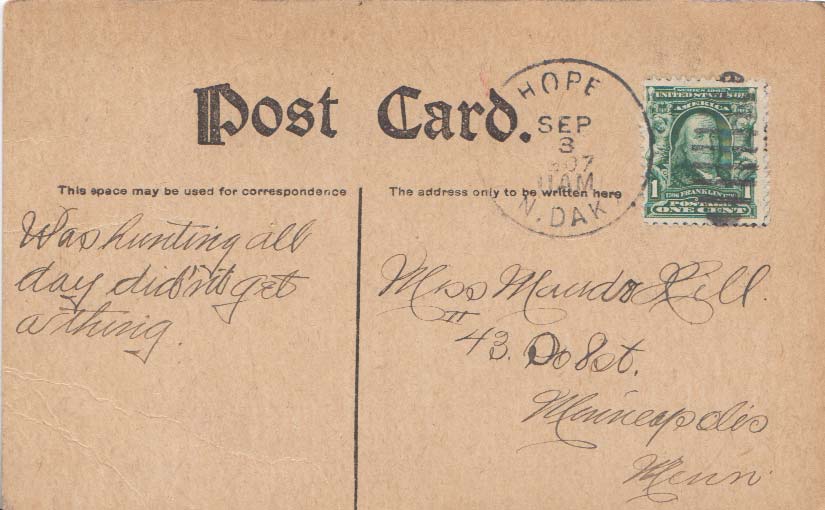 Post Card.
HOPE
SEP
3
1907
11 AM
N. DAK.
SERIES 1902
UNITED STATES OF
AMERICA
1 FRANKLIN 1
POSTAGE
ONE CENT
This space may be used for correspondence
The address only to be written here
Was hunting all
day did'nt get
a thing.
Miss Maude Hill.
43. So 8 st.
Minneapolis
Minn.